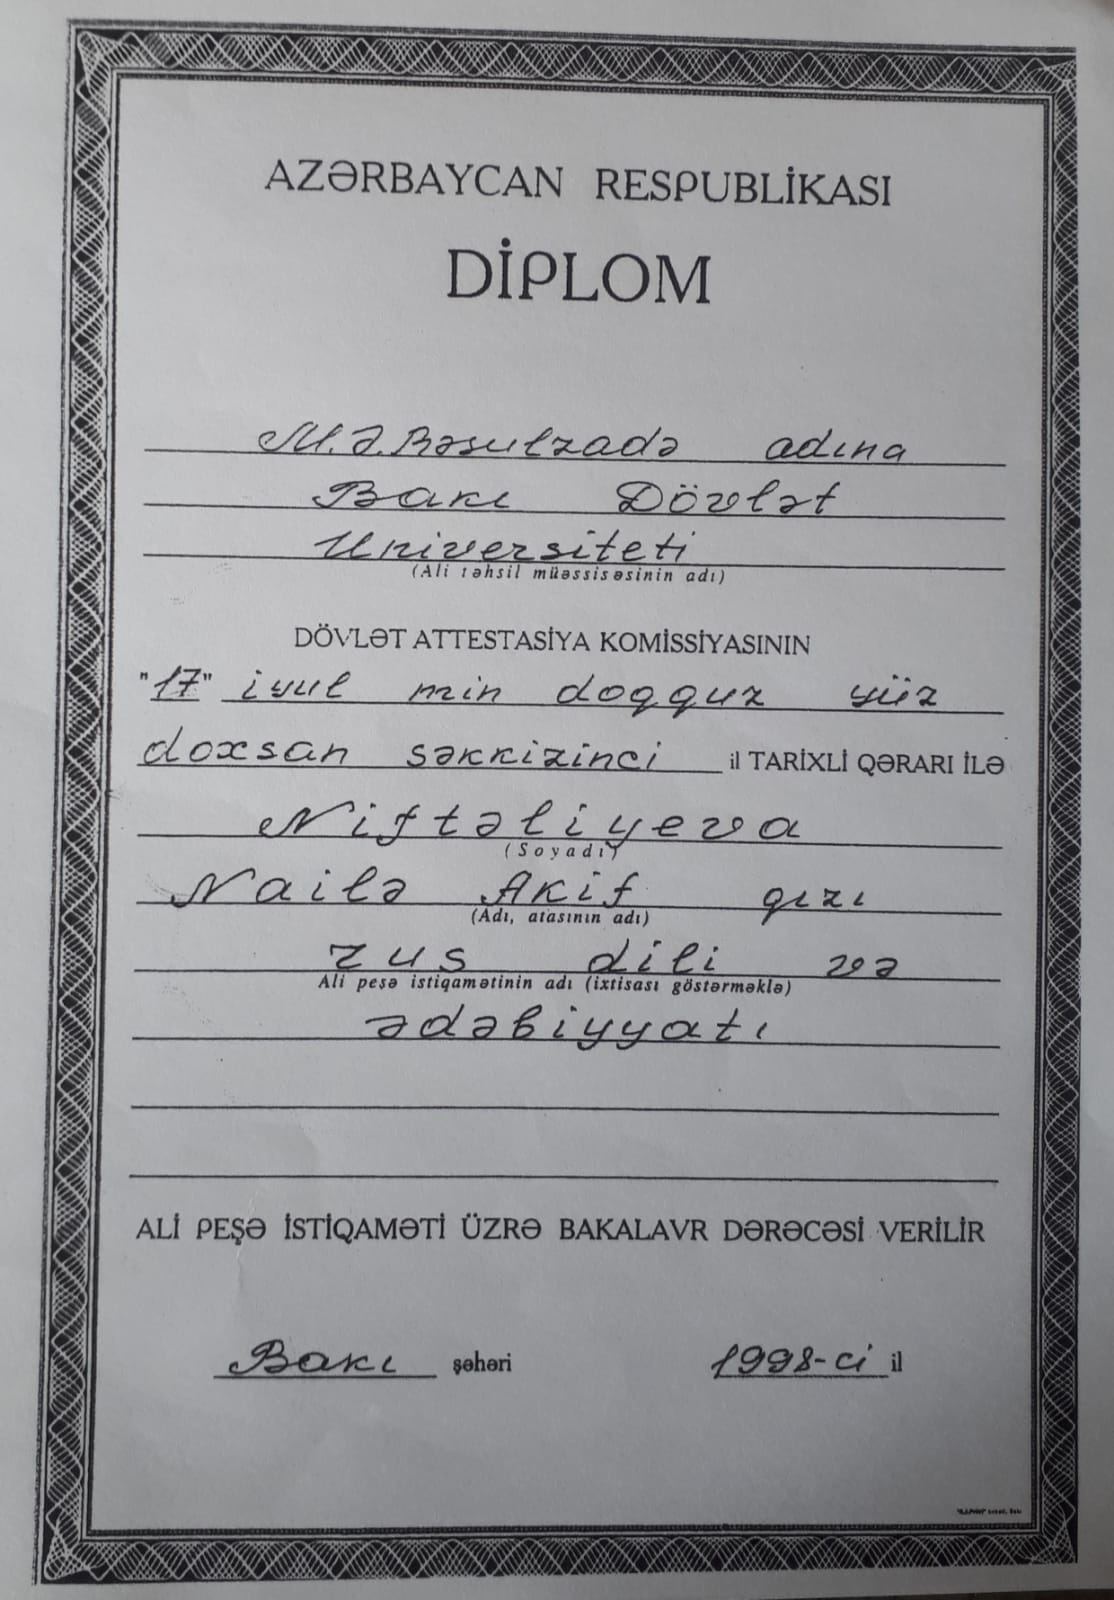 AZƏRBAYCAN RESPUBLİKASI
DİPLOM
M.Ə.Rəsulzadə adına
Bakı Dövlət
Universiteti
(Ali təhsil müəssisəsinin adı)
DÖVLƏT ATTESTASİYA KOMİSSİYASININ
"17" iyul min doqquz yüz
doxsan səkkizinci il TARİXLİ QƏRARI İLƏ
Niftəliyeva
(Soyadı)
Nailə Akif qızı
(Adı, atasının adı)
rus dili və
Ali peşə istiqamətinin adı (ixtisası göstərməklə)
ədəbiyyatı
ALİ PEŞƏ İSTİQAMƏTİ ÜZRƏ BAKALAVR DƏRƏCƏSİ VERİLİR
Bakı şəhəri 1998-ci il